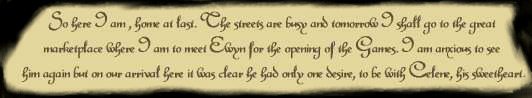 So here I am , home at last. The streets are busy and tomorrow I shall go to the great
marketplace where I am to meet Ewyn for the opening of the Games. I am anxious to see
him again but on our arrival here it was clear he had only one desire, to be with Celene, his sweetheart.